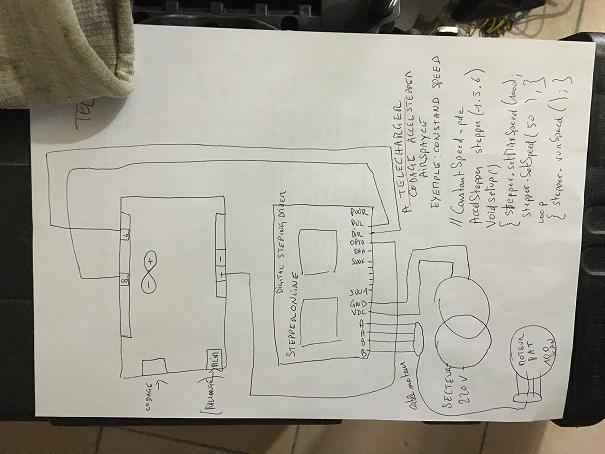 A TELECHARGER
CODAGE ACCELSTEPPER
AIRSPAYCE
EXEMPLE: CONSTAND SPEED
// ConstantSpeed-pde
AccelStepper stepper (1.5.6)
Void setup()
{ stepper.setMaxSpeed (1000);
stepper.SetSpeed (50 ); }
LOOP
{ stepper.runSpeed (); }
6
5
- +
CODAGE
ALIM
DIGITAL STEPING DRIVER
STEPPERONLINE
PUL
DIR
OPTO
ENA
SW6
SW1
GND
VDC
A
A
B
B
cable moteur
SECTEUR
220 V
MOTEUR
PAT